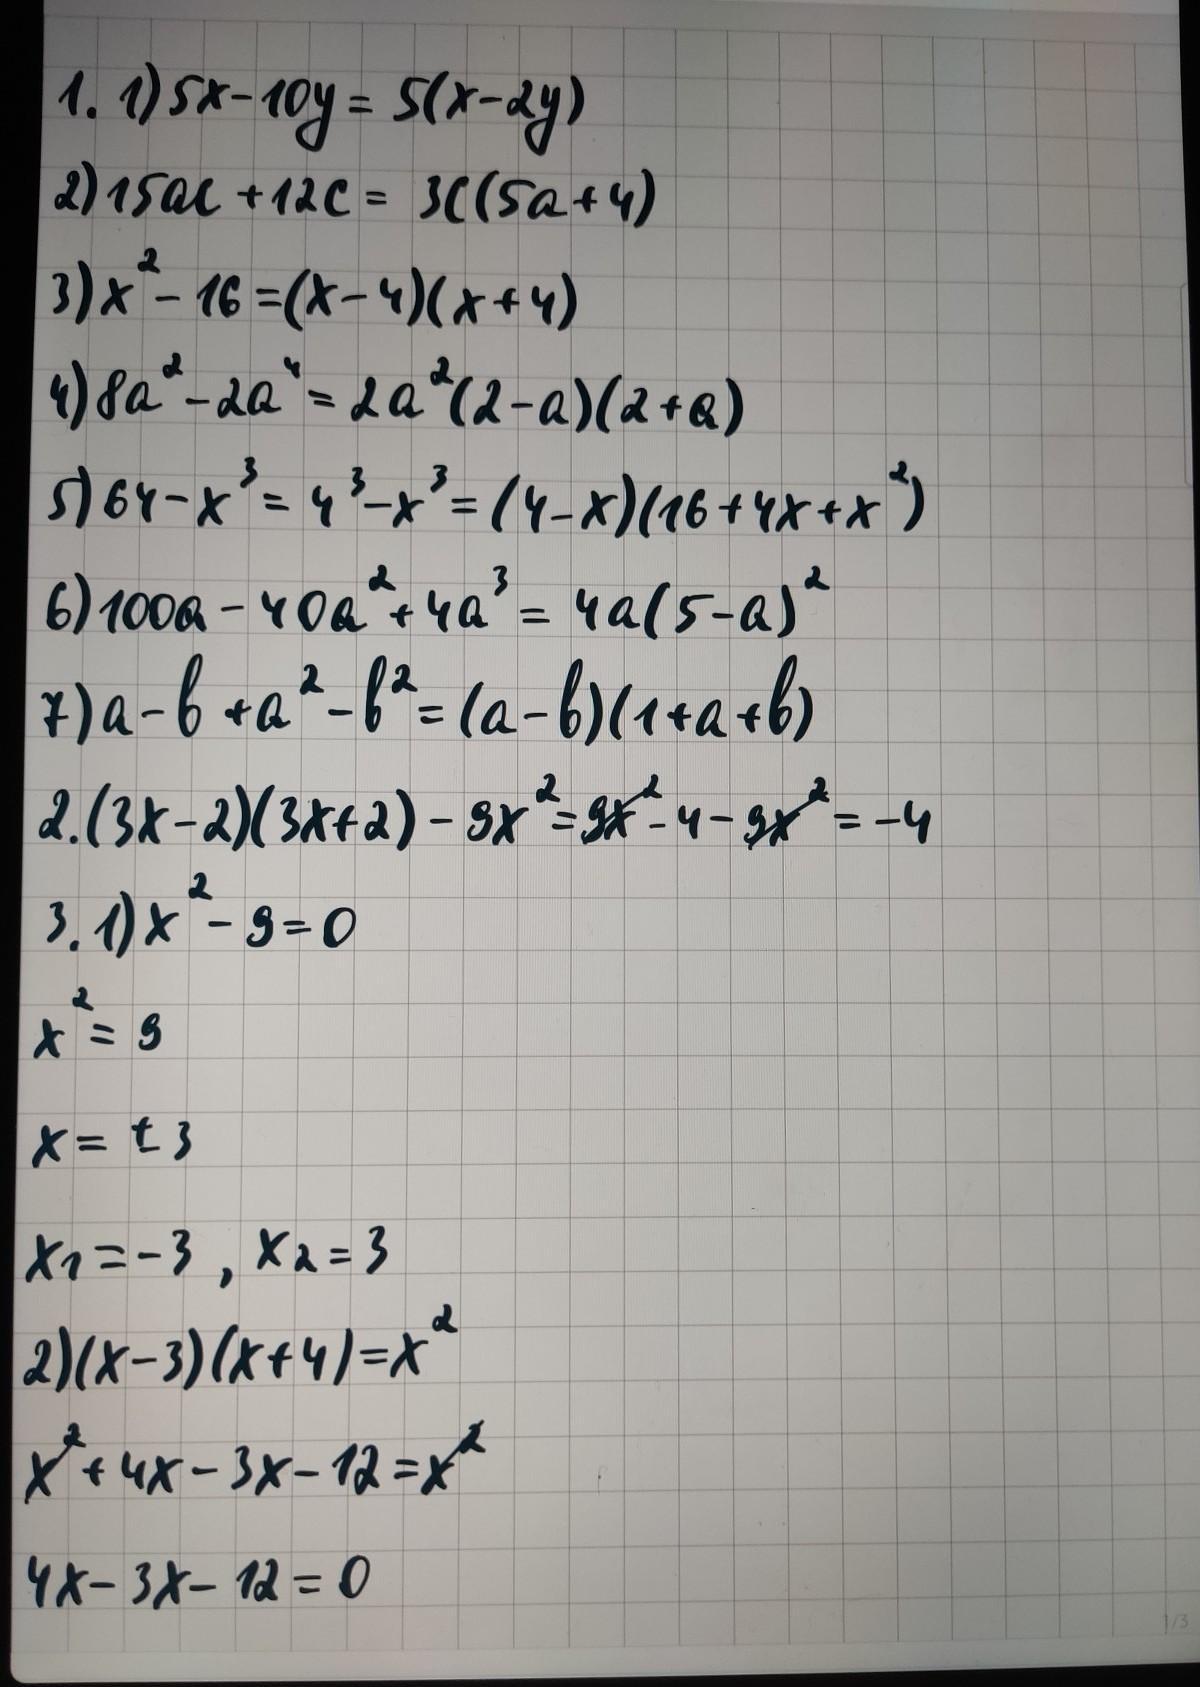 1. 1) 5x - 10y = 5(x - 2y)
2) 15ac + 12c = 3c(5a + 4)
3) x² - 16 = (x - 4)(x + 4)
4) 8a² - 2a⁴ = 2a²(2 - a)(2 + a)
5) 64 - x³ = 4³ - x³ = (4 - x)(16 + 4x + x²)
6) 100a - 40a² + 4a³ = 4a(5 - a)²
7) a - b + a² - b² = (a - b)(1 + a + b)
2. (3x - 2)(3x + 2) - 9x² = 9x² - 4 - 9x² = -4
3. 1) x² - 9 = 0
x² = 9
x = ±3
x₁ = -3, x₂ = 3
2) (x - 3)(x + 4) = x²
x² + 4x - 3x - 12 = x²
4x - 3x - 12 = 0
1/3